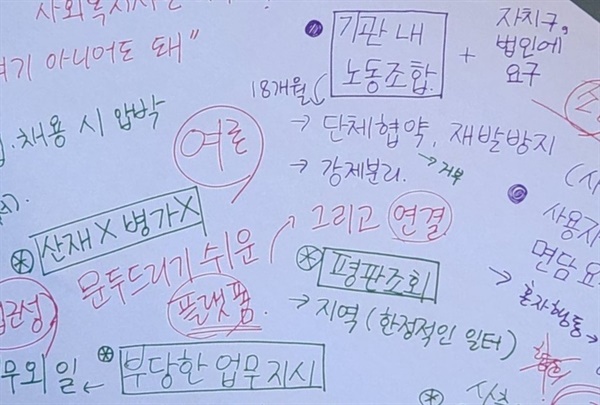 여기 아니어도 돼"
채용 시 압박
여론
산재 X 병가 X
문두드리기 쉬운
플랫폼.
무외 일 ← 부당한 업무지시
기관 내
노동조합.
+ 자치구,
법인에
요구
18개월
→ 단체협약, 재발방지
→ 거부
→ 강제분리.
그리고 연결
평판조회
→ 지역 (한정적인 일터)
사용자
면담 요
→ 혼자행동 →